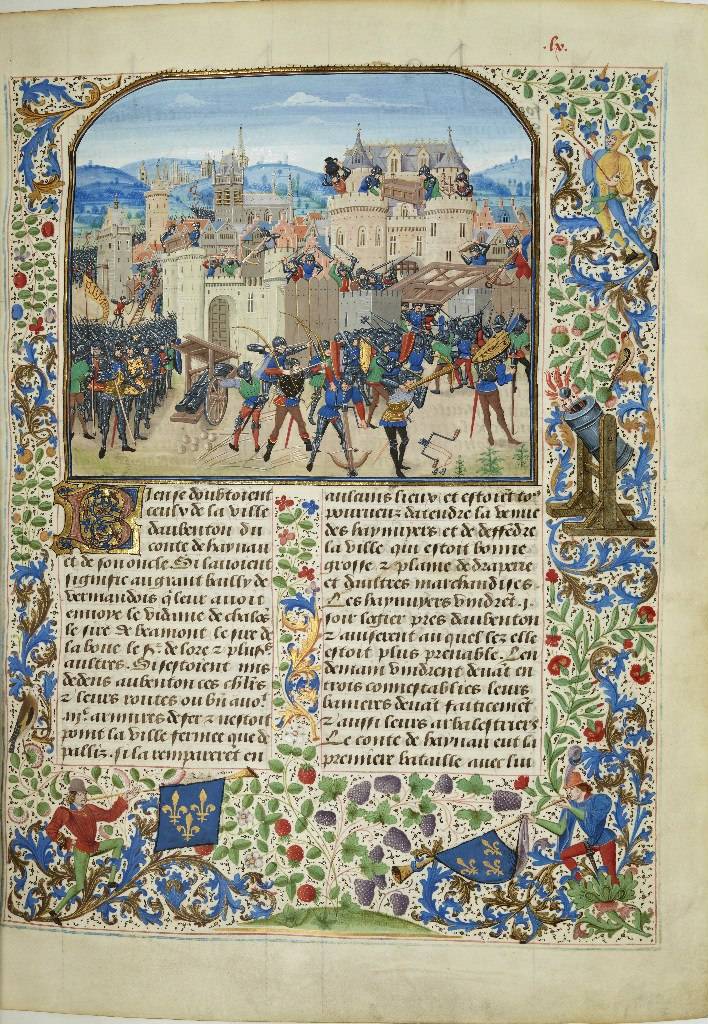 .lx.
Bien se doubtoient
ceulx de la ville
daubenton du
conte de haynau
et de son oncle. Si lavoient
signifie au grant bailly de
vermandois qͥ leur avoit
envoye le vidame de chaalōs
le sire de beaumont le sire de
la bove le sʳ. de lore ⁊ plusʳˢ
aultres. Si sestoient mis
dedens aubenton ces chlrs̄
⁊ leurs routes ou bn̄ avoit
armures de fer ⁊ nestoit
point la ville fermee que de
palliz. si la remparerēt en
aulcuns lieux et estoiēt to⁹
pourveuz datendre la venue
des haynuyers et de deffēdre
la ville qui estoit bonne
grosse ⁊ plaine de draperie
et daultres marchandises.
Les haynuyers vindrēt .j.
soir logier pres daubenton
⁊ aviserent au quel lez elle
estoit plus prenable. Len
demain vindrent devāt en
trois connestablies leurs
banieres devāt faiticemēt
⁊ aussi leurs arbalestriers
Le conte de haynau eut la
premiere bataille avec lui